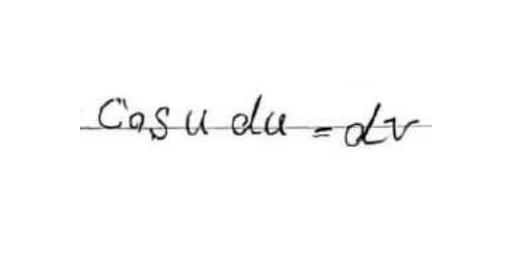 Cos u du = dv